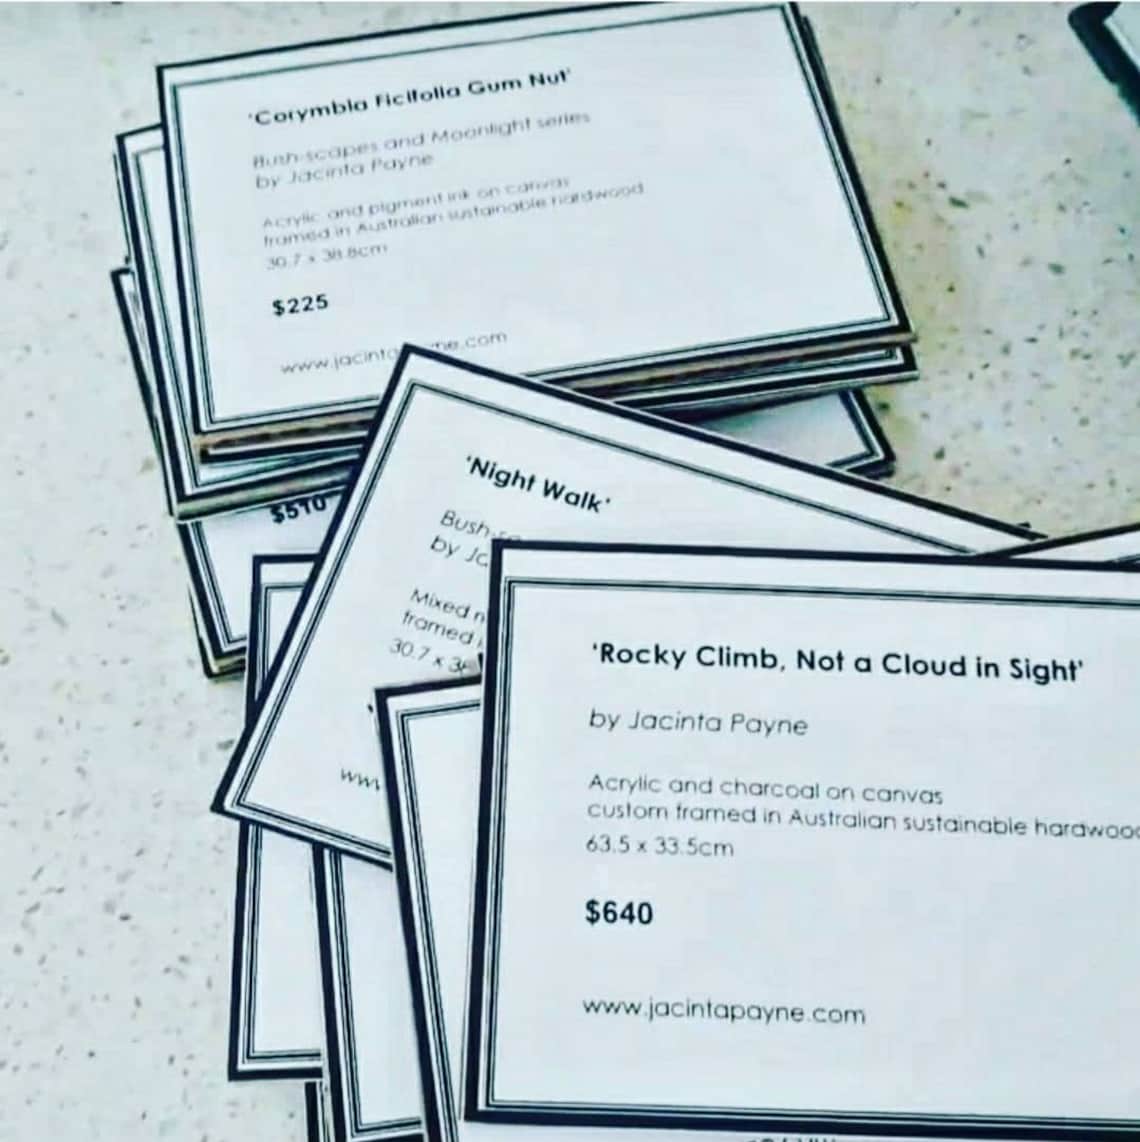 'Corymbia Ficifolia Gum Nut'
Bush-scapes and Moonlight series
by Jacinta Payne
Acrylic and pigment ink on canvas
framed in Australian sustainable hardwood
30.7 x 38.8cm
$225
www.jacinta
ne.com
$510
'Night Walk'
Bush-
by Jc
Mixed
framed
30.7 x 3
www
'Rocky Climb, Not a Cloud in Sight'
by Jacinta Payne
Acrylic and charcoal on canvas
custom framed in Australian sustainable hardwoo
63.5 x 33.5cm
$640
www.jacintapayne.com